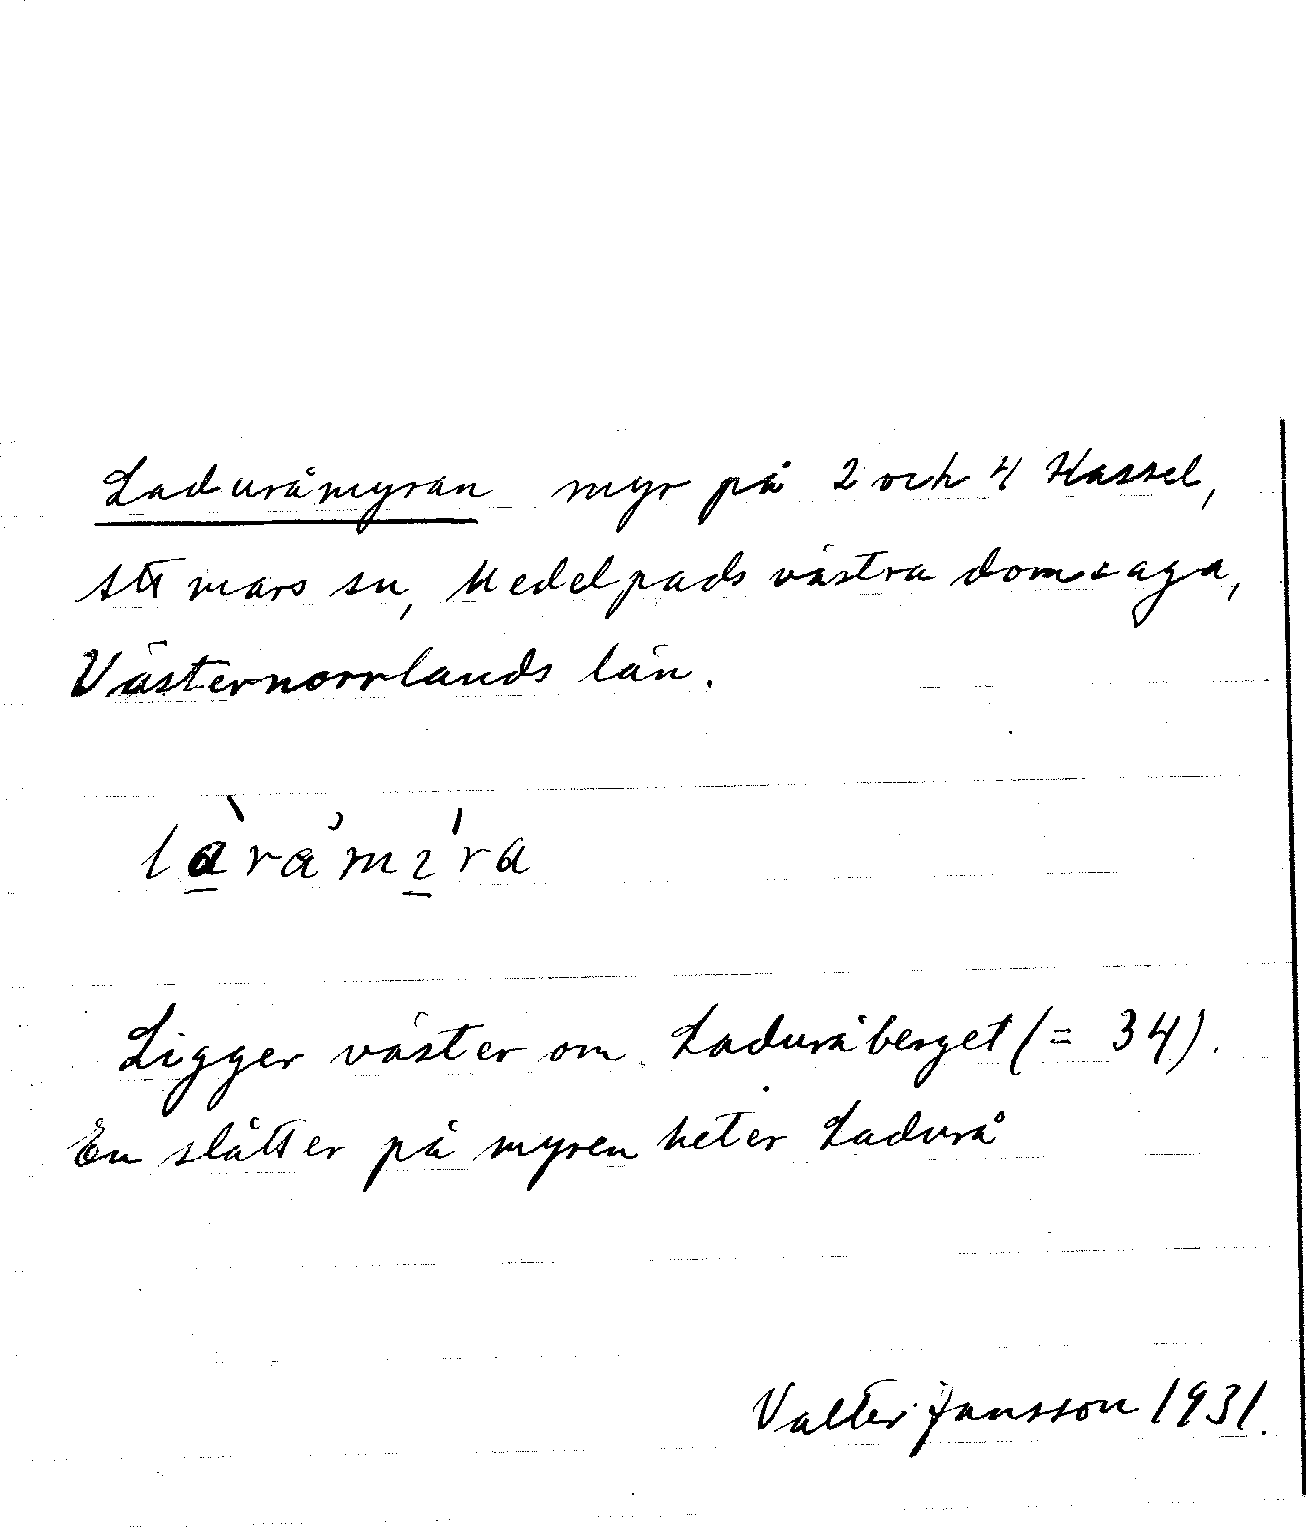 Laduråmyran myr på 2 och 4 Hassel,
Attmars sn, Medelpads västra domsaga,
Västernorrlands län.
Ligger väster om Laduråberget (= 34).
En slåtter på myren heter Ladurå
Valter Jansson 1931.